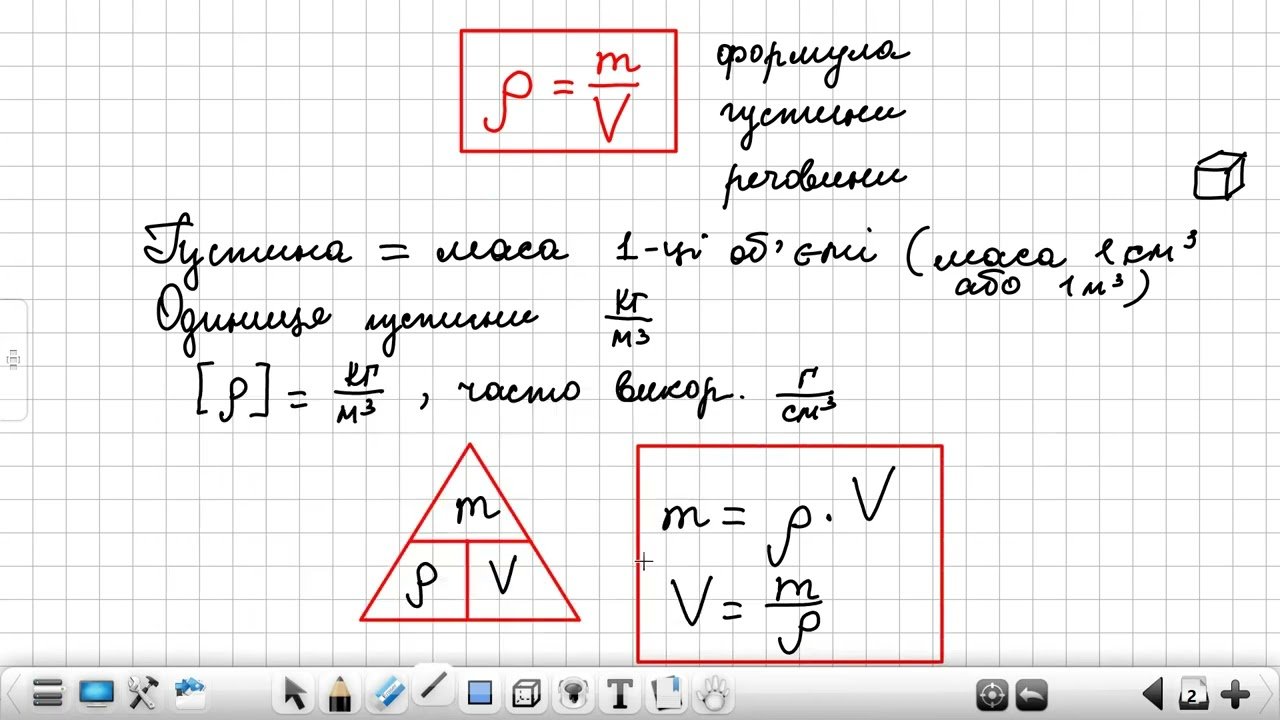 ρ = m/V
формула
густини
речовини
Густина = маса 1-ці об'ємі (маса 1 см³
або 1 м³)
Одиниця густини кг/м3
[ρ] = кг/м³ , часто викор. г/см³
m
ρ V
m = ρ · V
V = m/ρ
T
2